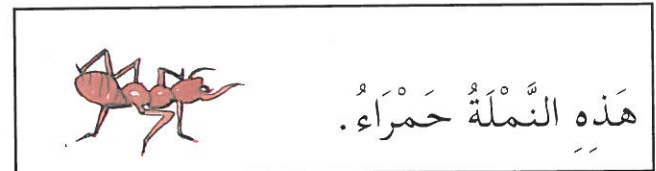 هَذِهِ النَّمْلَةُ حَمْرَاءُ.